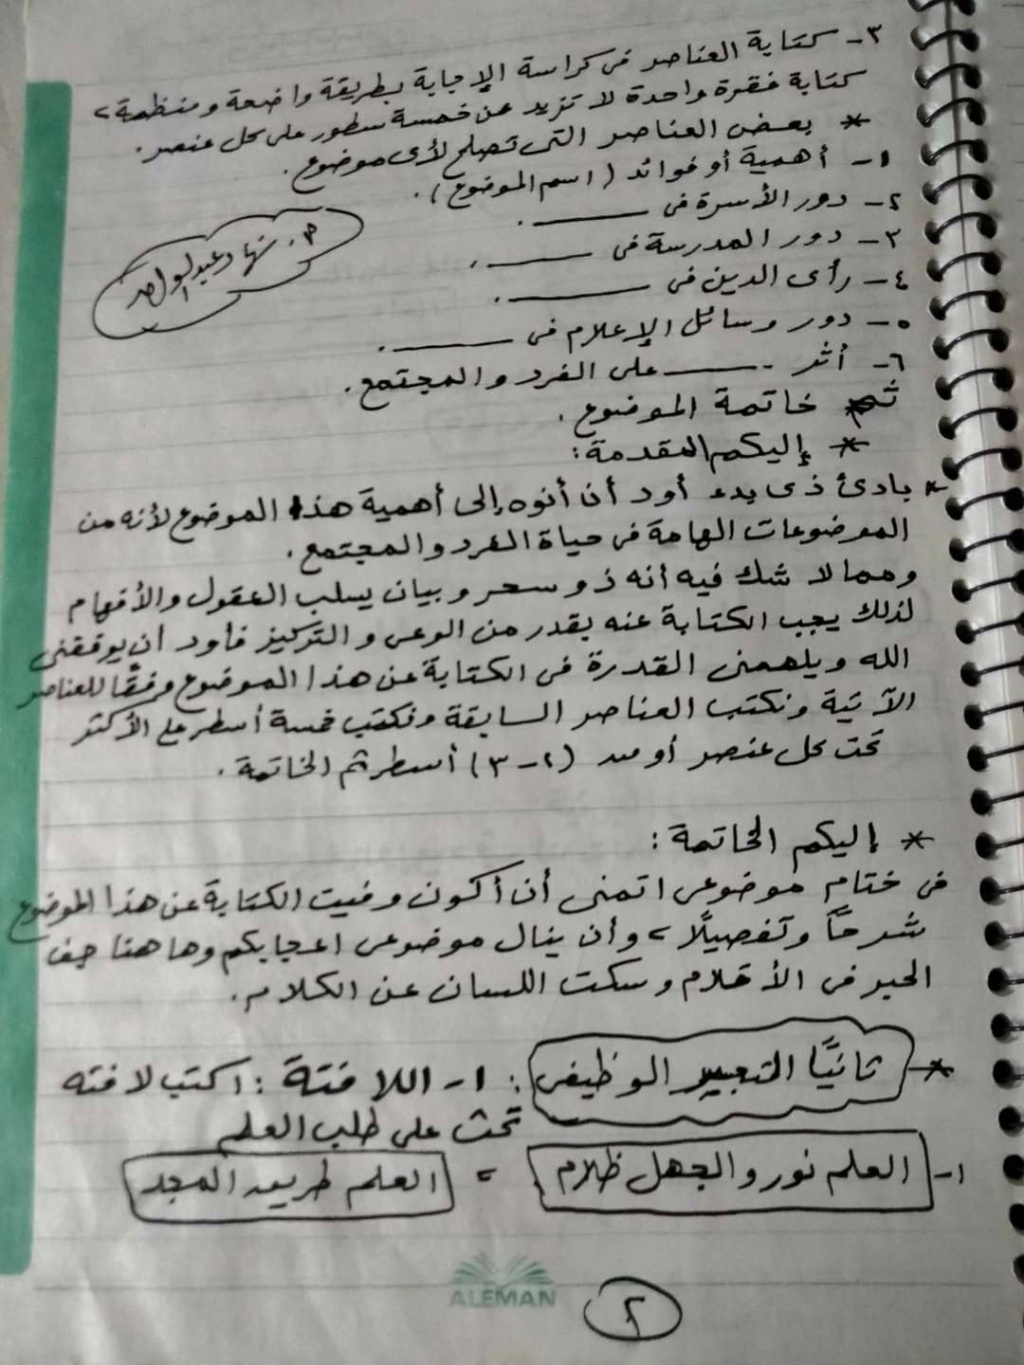 ٣- كتابة العناصر فى كراسة الإجابة بطريقة واضحة ومنظمة،
كتابة فقرة واحدة لا تزيد عن خمسة سطور على كل عنصر.
* بعض العناصر التى تصلح لأى موضوع.
١- أهمية أو فوائد (اسم الموضوع).
٢- دور الأسرة فى ـــــــ.
٣- دور المدرسة فى ـــــــ.
٤- رأى الدين فى ـــــــ.
٥- دور وسائل الإعلام فى ـــــــ.
٦- أثر ـــــــ على الفرد والمجتمع.
ثم خاتمة الموضوع.
م. نهاد عبد الواحد
* إليكم المقدمة:
* بادئ ذى بدء أود أن أنوه إلى أهمية هذا الموضوع لأنه من
الموضوعات الهامة فى حياة الفرد والمجتمع.
ومما لا شك فيه أنه ذو سحر وبيان يسلب العقول والأفهام
لذلك يجب الكتابة عنه بقدر من الوعى والتركيز فأود أن يوفقنى
الله ويلهمنى القدرة فى الكتابة عن هذا الموضوع وفقًا للعناصر
الآتية ونكتب العناصر السابقة ونكتب خمسة أسطر على الأكثر
تحت كل عنصر أو من (٢-٣) أسطر ثم الخاتمة.
* إليكم الخاتمة:
فى ختام موضوعى اتمنى أن أكون وفيت الكتابة عن هذا الموضوع
شرحًا وتفصيلًا، وأن ينال موضوعى اعجابكم وها هنا جف
الحبر فى الأقلام وسكت اللسان عن الكلام.
* ثانيًا التعبير الوظيفى: ١- اللافتة: اكتب لافته
تحث على طلب العلم
١- العلم نور والجهل ظلام، العلم طريق المجد
ALEMAN
٢